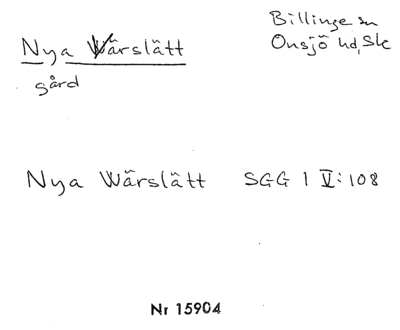 Nya Wärslätt
gård
Billinge sn
Onsjö hd, Sk
Nya Wärslätt SGG 1 V:108
Nr 15904